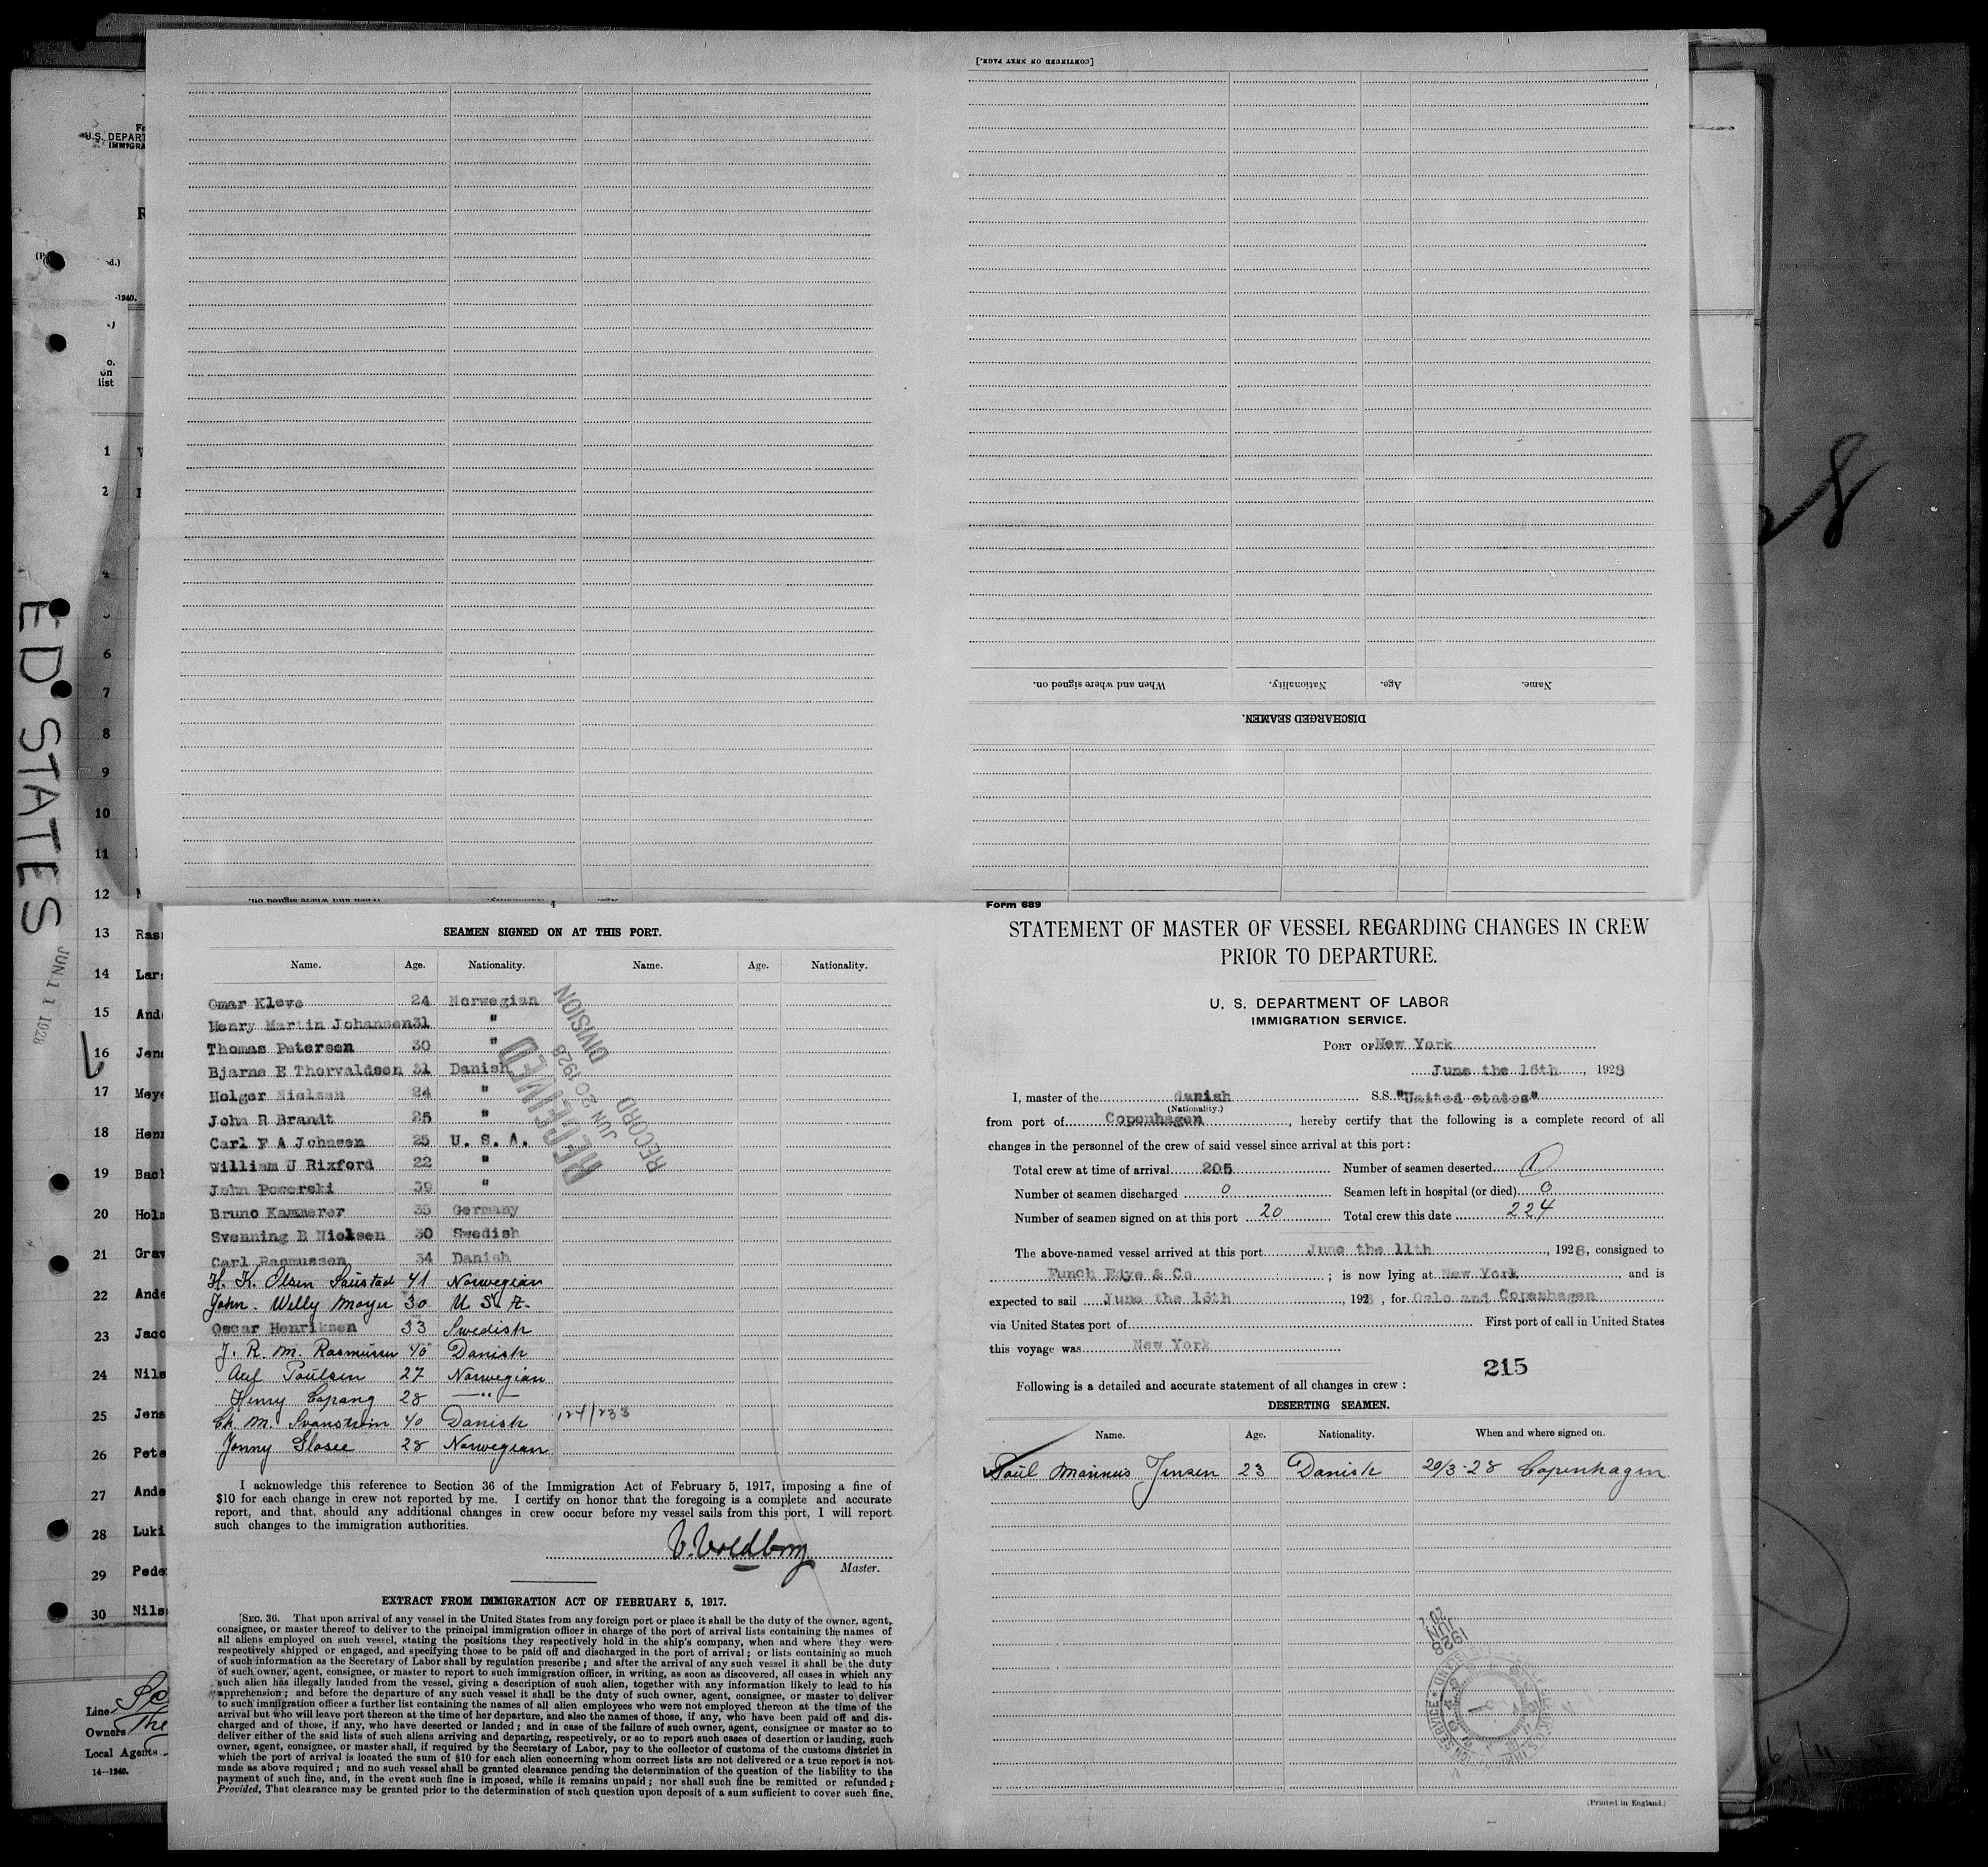 [CONTINUED ON NEXT PAGE.]
When and where signed on. Nationality. Age. Name.
DISCHARGED SEAMEN.
U.S. DEPART
IMMIGRA
-1240.
list
1
2
4
6
7
8
9
10
11
12
13 Ras
14 Lar
15 And
16 Jen
17 Meye
18 Henr
19 Bach
20 Holm
21 Grav
22 Ande
23 Jaco
24 Nils
25 Jens
26 Pete
27 Ande
28 Luki
29 Pede
30 Nils
Line
Owners The
Local Agents
14—1240.
ED STATES
JUN 11 1928
28
4
SEAMEN SIGNED ON AT THIS PORT.
Name. Age. Nationality. Name. Age. Nationality.
Omar Kleve 24 Norwegian
Henry Martin Johansen 31 "
Thomas Petersen 30 "
Bjarne E Thorvaldsen 31 Danish
Holger Nielsen 24 "
John R Brandt 25 "
Carl F A Johnsen 25 U. S. A.
William J Rixford 22 "
John Powerski 39 "
Bruno Kammerer 35 Germany
Svenning B Nielsen 30 Swedish
Carl Rasmussen 34 Danish
H. K. Olsen Saustad 41 Norwegian
John. Willy Mayer 30 U S. A.
Oscar Henriksen 33 Swedish
J. R. M. Rasmussen 40 Danish
Paulsen 27 Norwegian
Henry 28 — " —
Ch. M. Svanstrøm 40 Danish 124/233
Jonny 28 Norwegian
RECEIVED
JUN 20 1928
RECORD DIVISION
I acknowledge this reference to Section 36 of the Immigration Act of February 5, 1917, imposing a fine of
$10 for each change in crew not reported by me. I certify on honor that the foregoing is a complete and accurate
report, and that, should any additional changes in crew occur before my vessel sails from this port, I will report
such changes to the immigration authorities.
Master.
EXTRACT FROM IMMIGRATION ACT OF FEBRUARY 5, 1917.
[SEC. 36. That upon arrival of any vessel in the United States from any foreign port or place it shall be the duty of the owner, agent,
consignee, or master thereof to deliver to the principal immigration officer in charge of the port of arrival lists containing the names of
all aliens employed on such vessel, stating the positions they respectively hold in the ship's company, when and where they were
respectively shipped or engaged, and specifying those to be paid off and discharged in the port of arrival; or lists containing so much
of such information as the Secretary of Labor shall by regulation prescribe; and after the arrival of any such vessel it shall be the duty
of such owner, agent, consignee, or master to report to such immigration officer, in writing, as soon as discovered, all cases in which any
such alien has illegally landed from the vessel, giving a description of such alien, together with any information likely to lead to his
apprehension; and before the departure of any such vessel it shall be the duty of such owner, agent, consignee, or master to deliver
to such immigration officer a further list containing the names of all alien employees who were not employed thereon at the time of the
arrival but who will leave port thereon at the time of her departure, and also the names of those, if any, who have been paid off and dis-
charged and of those, if any, who have deserted or landed; and in case of the failure of such owner, agent, consignee or master so to
deliver either of the said lists of such aliens arriving and departing, respectively, or so to report such cases of desertion or landing, such
owner, agent, consignee, or master shall, if required by the Secretary of Labor, pay to the collector of customs of the customs district in
which the port of arrival is located the sum of $10 for each alien concerning whom correct lists are not delivered or a true report is not
made as above required; and no such vessel shall be granted clearance pending the determination of the question of the liability to the
payment of such fine, and, in the event such fine is imposed, while it remains unpaid; nor shall such fine be remitted or refunded:
Provided, That clearance may be granted prior to the determination of such question upon deposit of a sum sufficient to cover such fine.
Form 689
STATEMENT OF MASTER OF VESSEL REGARDING CHANGES IN CREW
PRIOR TO DEPARTURE.
U. S. DEPARTMENT OF LABOR
IMMIGRATION SERVICE.
PORT OF New York
June the 16th, 1928
I, master of the danish S.S. "United states"
(Nationality.)
from port of Copenhagen, hereby certify that the following is a complete record of all
changes in the personnel of the crew of said vessel since arrival at this port:
Total crew at time of arrival 205 Number of seamen deserted 1
Number of seamen discharged 0 Seamen left in hospital (or died) 0
Number of seamen signed on at this port 20 Total crew this date 224
The above-named vessel arrived at this port June the 11th, 1928, consigned to
Funch Edye & Co; is now lying at New York, and is
expected to sail June the 16th, 1928, for Oslo and Copenhagen
via United States port of First port of call in United States
this voyage was New York
215
Following is a detailed and accurate statement of all changes in crew:
DESERTING SEAMEN.
Name. Age. Nationality. When and where signed on.
Paul Marinus Jensen 23 Danish 20/3-28 Copenhagen
1928
JUN
(Printed in England.)